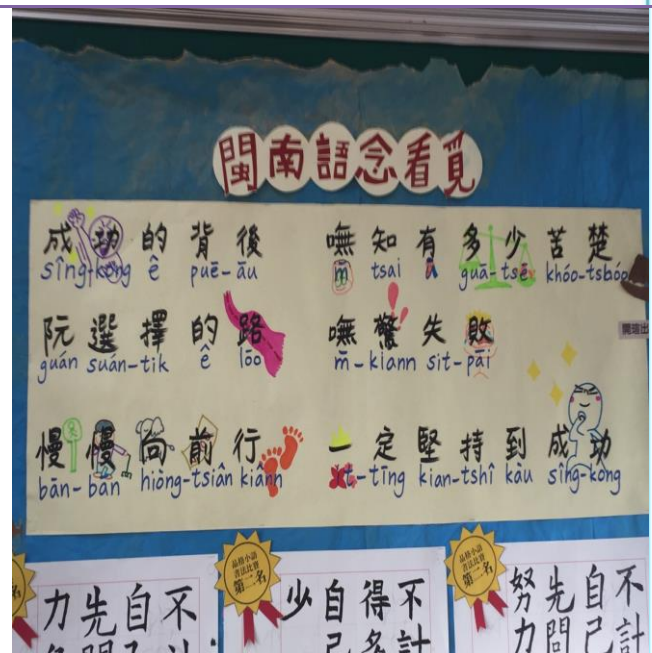 閩南語念看覓
成功的背後 嘸知有多少苦楚
sîng-kong ê puē-āu m̄ tsai ū guā-tsē khóo-tsbóo
阮選擇的路 嘸驚失敗
guán suán-tik ê lōo m̄-kiann sit-pāi
慢慢向前行 一定堅持到成功
bān-bān hiòng-tsiân kiânn it-tīng kian-tshî kàu sîng-kong
品格小語
書法比賽
第二名
品格小語
書法比賽
第二名
名
不
自
先
力
不計
得多
自己
少
不計
自己
先問
努力